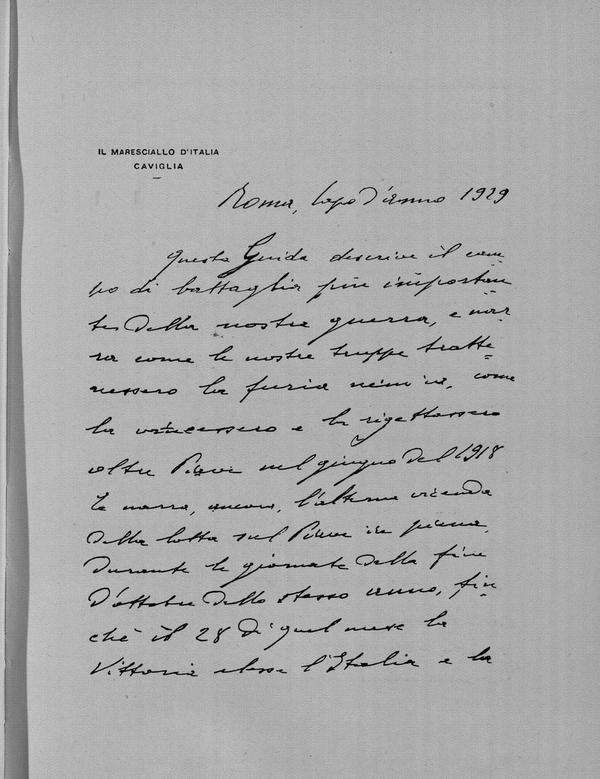 IL MARESCIALLO D'ITALIA
CAVIGLIA
Roma, Capo d'anno 1929
Questa Guida descrive il cam
po di battaglia più importan
te della nostra guerra, e nar
ra come le nostre truppe tratte
nessero la furia nemica, come
la vincessero e la rigettassero
oltre Piave nel giugno del 1918
E narra, ancora, l'alterna vicenda
della lotta sul Piave in piena,
durante le giornate della fine
d'ottobre dello stesso anno, fin
chè il 28 di quel mese la
Vittoria elesse l'Italia e la